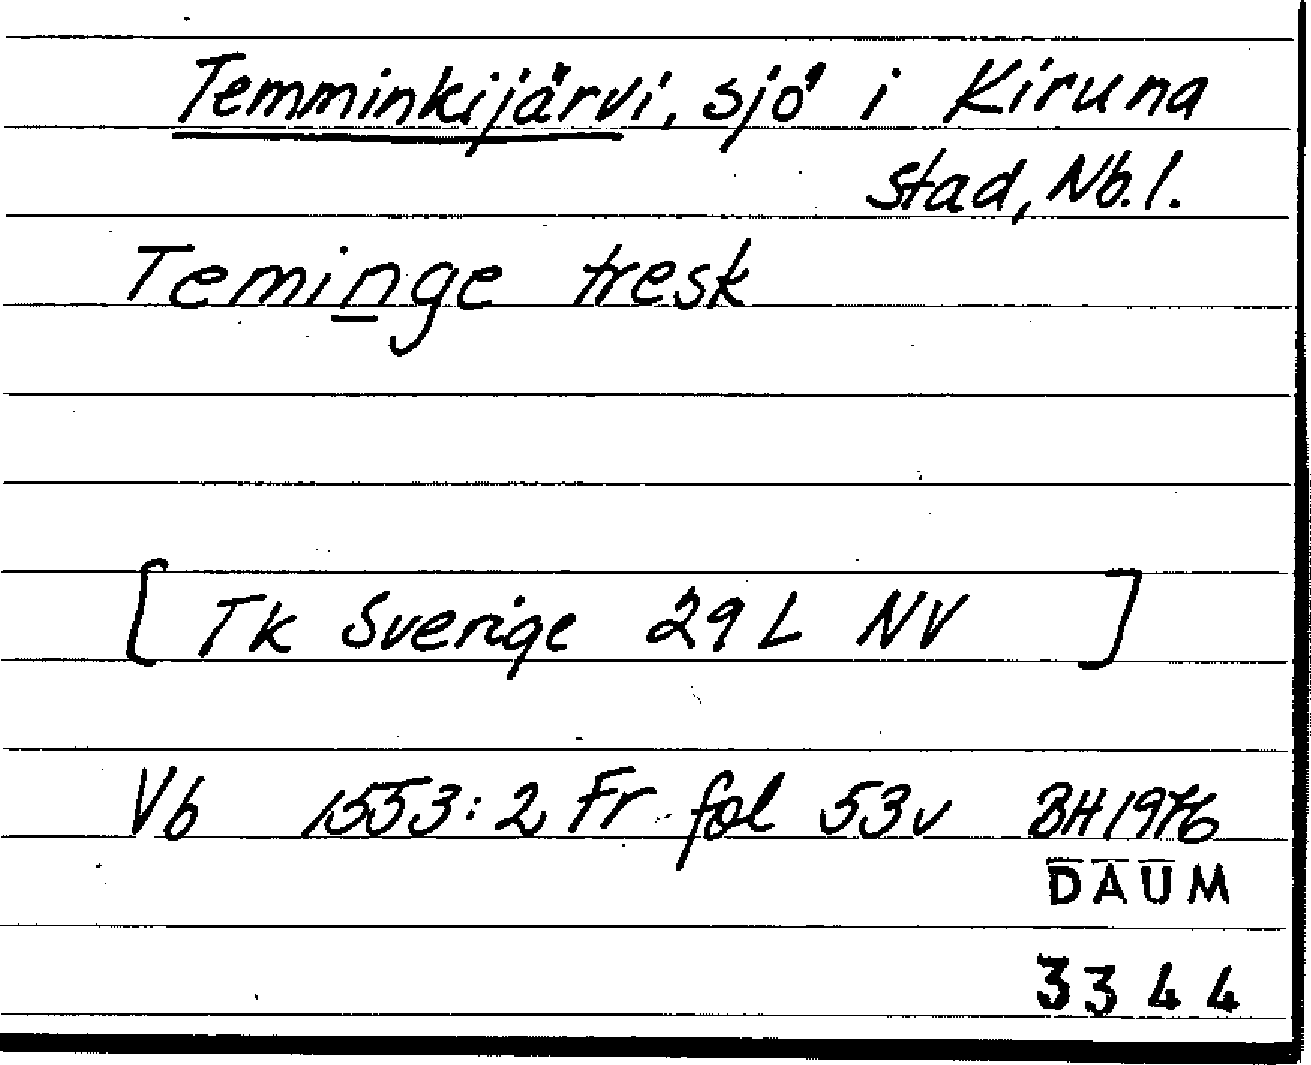 Temminkijärvi, sjö i Kiruna
stad, Nb. l.
Teminge tresk
[ Tk Sverige 29 L NV ]
Vb 1553:2 Fr fol 53v BH 1976
DAUM
3344